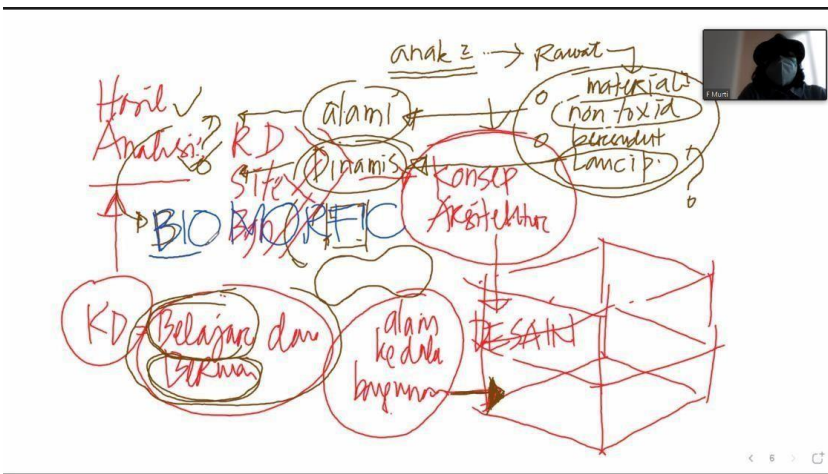 anak 2 → Rawat
F Murti
Hasil ✓
Analisis
alami
RD
Site
Dinamis
material
non toxid
Lancip.
?
Konsep
Arsitektur
BIOMORFIC
KD
Belajar dan
Bermain
alam
ke dalam
bangunan
DESAIN
6